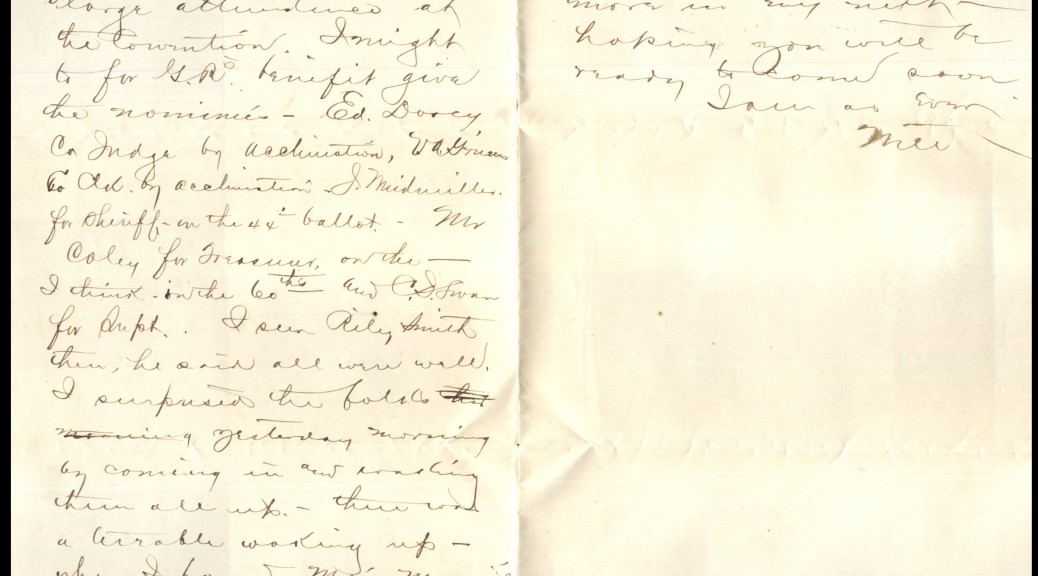 large attendence at
the Convention. I might
to for G.R's. benifit give
the nominies - Ed. Dorcy
Co Judge by acclimation,
Co Clk. by acclimation J. Midmiller.
for Sheriff - on the 44" ballot. - Mr
Coley for Treasurer, on the —
I think - in the 60ths and C.D. Swan
for Supt. . I seen Riley Smith
then, he said all were well.
I surprised the folks this
morning yesterday morning
by coming in and waking
them all up. - there was
a terrable waking up -
more in my next —
hoping you will be
ready to come soon
I am as Ever
Will